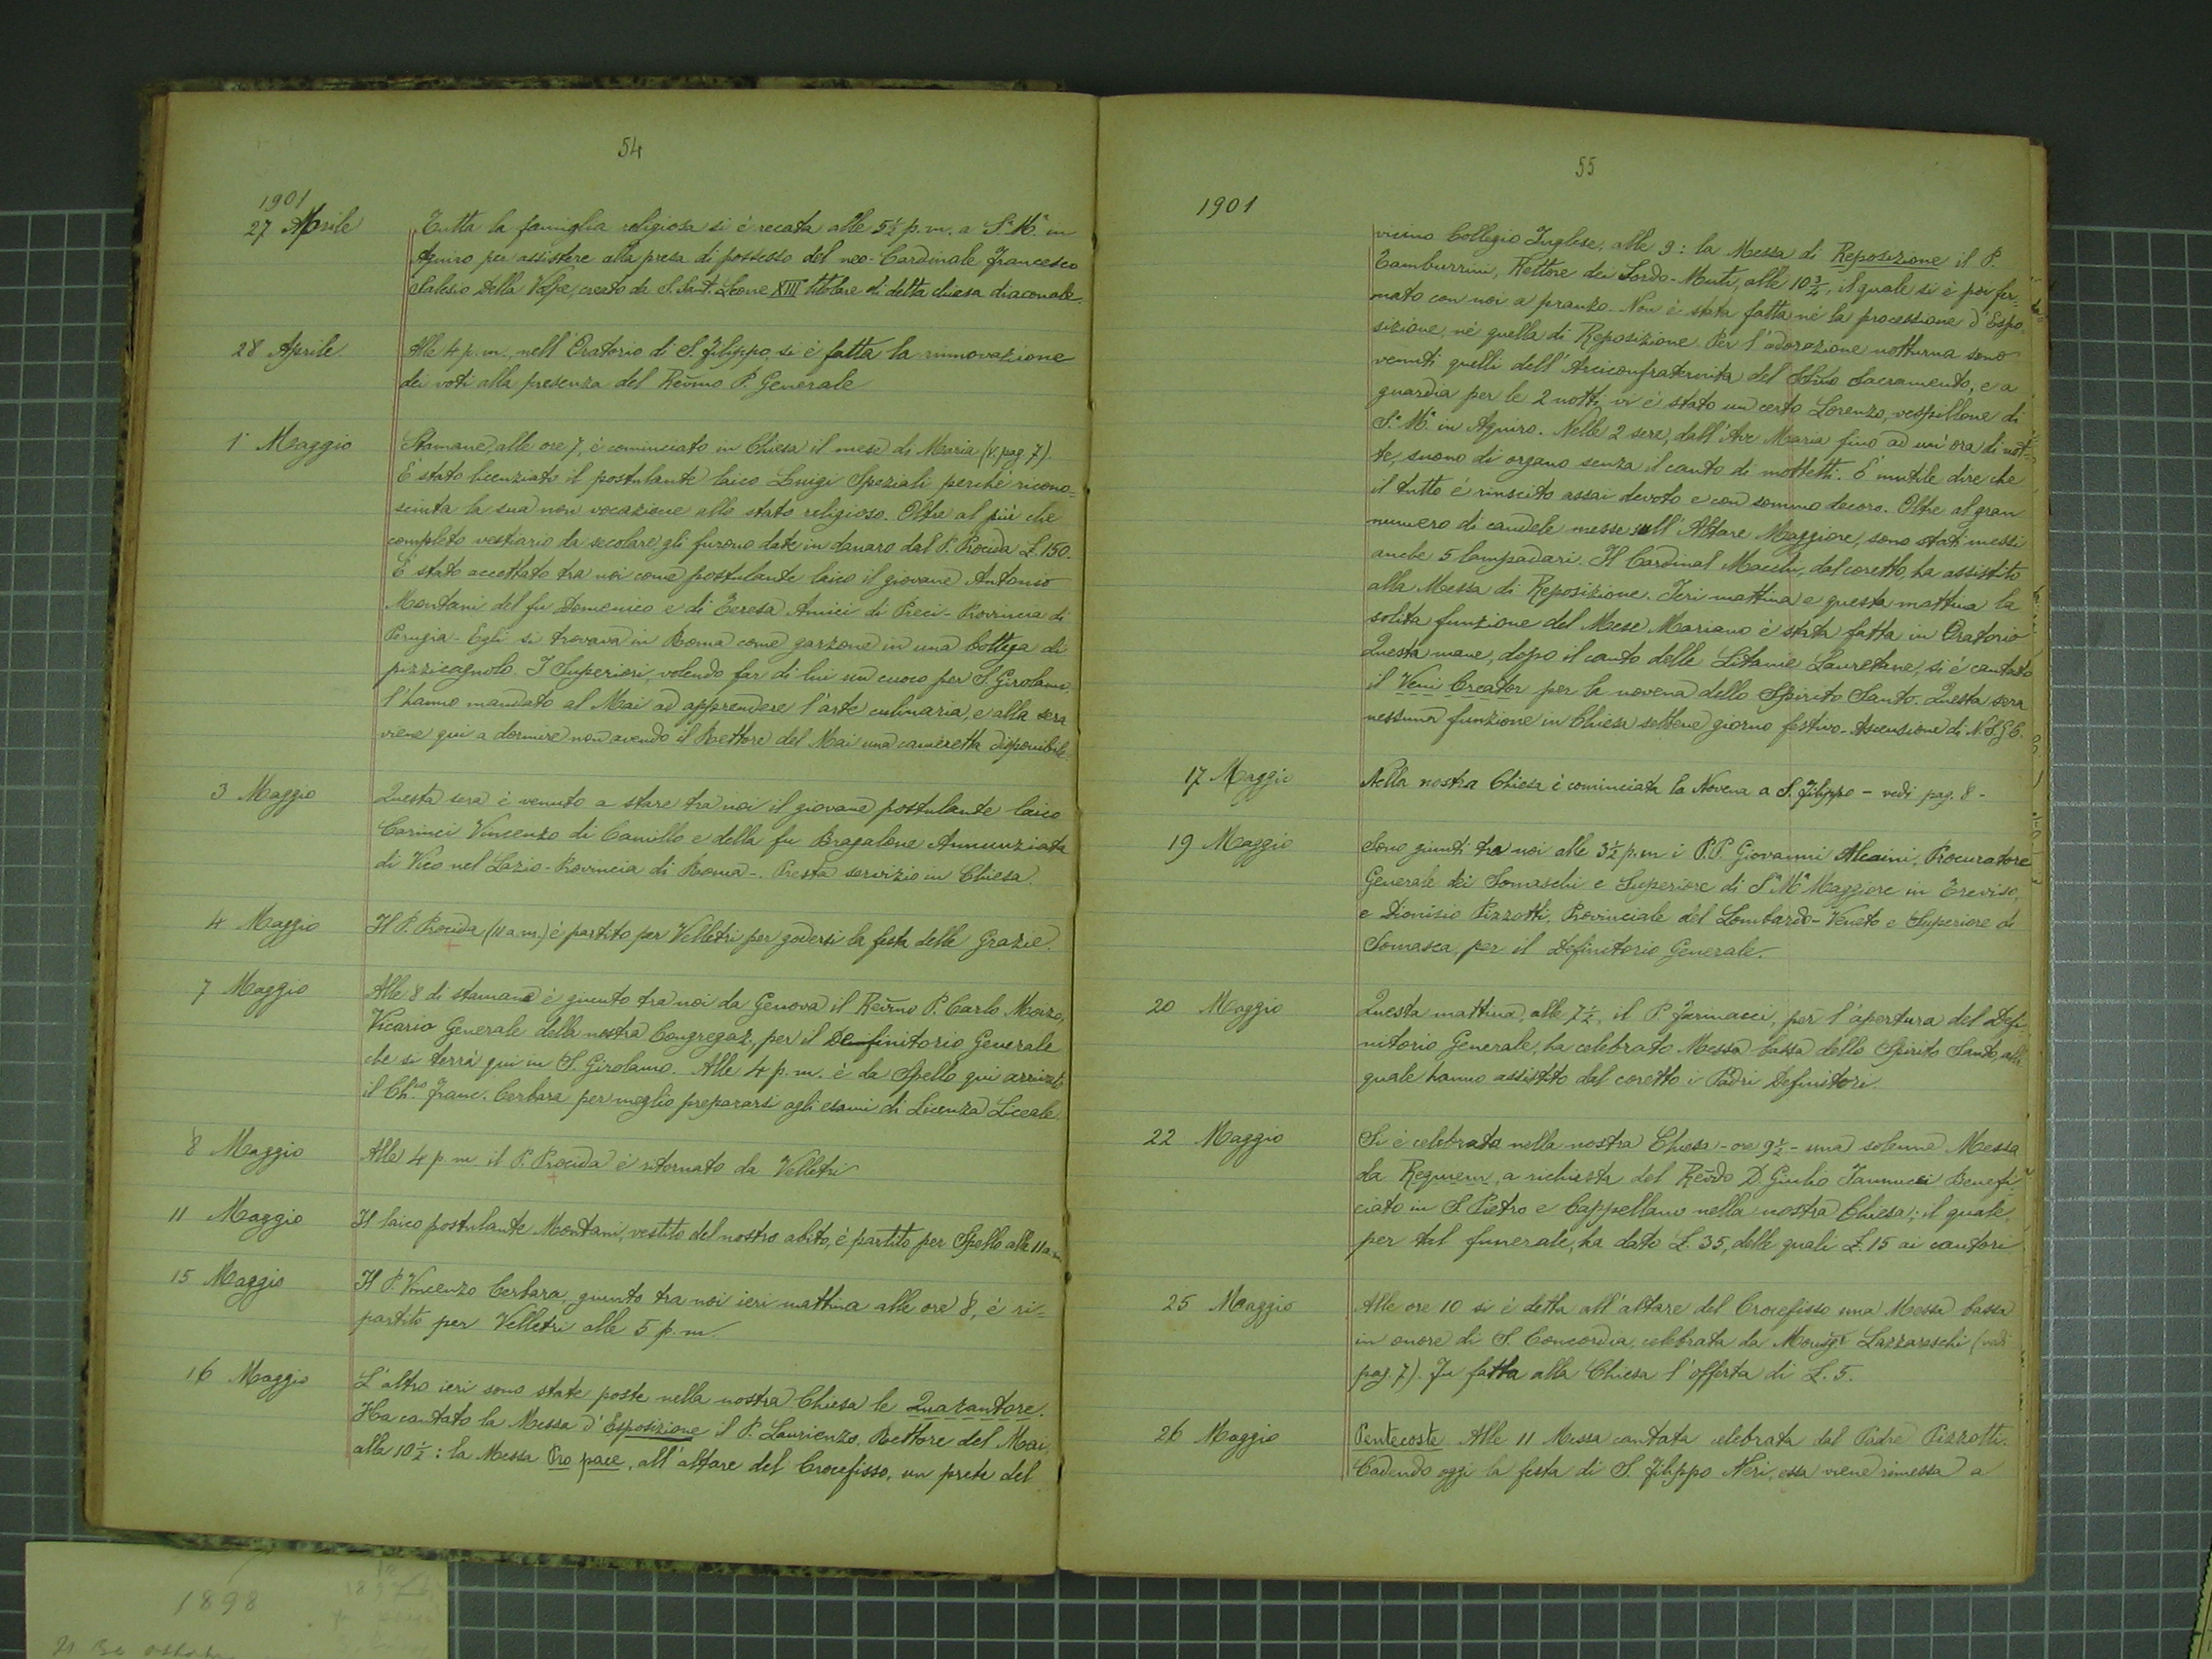 54
1901
27 Aprile Tutta la famiglia religiosa si è recata alle 5½ p.m. a S.ª M.ª in
Aquiro per assistere alla presa di possesso del neo-Cardinale Francesco
Salesio Della Volpe, creato da S. Sant. Leone XIII titolare di detta chiesa diaconale.
28 Aprile Alle 4 p.m., nell'Oratorio di S. Filippo, si è fatta la rinnovazione
dei voti alla presenza del Rev̄mo P. Generale
1° Maggio Stamane, alle ore 7, è cominciato in Chiesa il mese di Maria (v. pag. 7).
È stato licenziato il postulante laico Luigi Speziali perchè ricono=
sciuta la sua non vocazione allo stato religioso. Oltre al più che
completo vestiario da secolare, gli furono date in danaro dal P. Procida £. 150.
È stato accettato tra noi come postulante laico il giovane Antonio
Montani del fu Domenico e di Teresa Amici di Preci - Provincia di
Perugia - Egli si trovava in Roma come garzone in una bottega di
pizzicagnolo. I Superiori, volendo far di lui un cuoco per S. Girolamo,
l'hanno mandato al Mai ad apprendere l'arte culinaria, e alla sera
viene qui a dormire non avendo il Rettore del Mai una cameretta disponibile.
3 Maggio Questa sera è venuto a stare tra noi il giovane postulante laico
Carinci Vincenzo di Camillo e della fu Bragalone Annunziata
di Vico nel Lazio - Provincia di Roma -. Presta servizio in Chiesa.
4 Maggio Il P. Procida (11 a.m.) è partito per Velletri per godersi la festa delle Grazie.
7 Maggio Alle 8 di stamane è giunto tra noi da Genova il Rev̄mo P. Carlo Moizo,
Vicario Generale della nostra Congregaz., per il Definitorio Generale
che si terrà qui in S. Girolamo. Alle 4 p.m. è da Spello qui arrivato
il Ch.co Franc. Cerbara per meglio prepararsi agli esami di Licenza Liceale.
8 Maggio Alle 4 p.m. il P. Procida è ritornato da Velletri
11 Maggio Il laico postulante Montani, vestito del nostro abito, è partito per Spello alle 11 a.m.
15 Maggio Il P. Vincenzo Cerbara, giunto tra noi ieri mattina alle ore 8, è ri=
partito per Velletri alle 5 p.m.
16 Maggio L'altro ieri sono state poste nella nostra Chiesa le Quarantore.
Ha cantato la Messa d'Esposizione il P. Laurienzo, Rettore del Mai,
alle 10½: la Messa Pro pace, all'altare del Crocefisso, un prete del
55
1901
vicino Collegio Inglese, alle 9: la Messa di Reposizione il P.
Tamburrini, Rettore dei Sordo-Muti, alle 10¾, il quale si è poi fer=
mato con noi a pranzo. Non è stata fatta nè la processione d'Espo
sizione, nè quella di Reposizione. Per l'adorazione notturna sono
venuti quelli dell'Arciconfraternita del SS̄mo Sacramento, e a
guardia per le 2 notti vi è stato un certo Lorenzo, vespillone di
S.ª M.ª in Aquiro. Nelle 2 sere, dall'Ave Maria fino ad un'ora di not=
te, suono di organo senza il canto di mottetti. È inutile dire che
il tutto è riuscito assai devoto e con sommo decoro. Oltre al gran
numero di candele messe sull'Altare Maggiore, sono stati messi
anche 5 lampadari. Il Cardinal Macchi, dal coretto, ha assistito
alla Messa di Reposizione. Ieri mattina e questa mattina la
solita funzione del Mese Mariano è stata fatta in Oratorio
Questa mane, dopo il canto delle Litanie Lauretane, si è cantato
il Veni Creator per la novena dello Spirito Santo. Questa sera
nessuna funzione in Chiesa sebbene giorno festivo - Ascensione di N.S.G.C.
17 Maggio Nella nostra Chiesa è cominciata la Novena a S. Filippo - vedi pag. 8 -
19 Maggio Sono giunti tra noi alle 3½ p.m i P.P. Giovanni Alcaini, Procuratore
Generale dei Somaschi e Superiore di S.ª M.ª Maggiore in Treviso,
e Dionisio Pizzotti, Provinciale del Lombardo-Veneto e Superiore di
Somasca, per il Definitorio Generale.
20 Maggio Questa mattina, alle 7½, il P. Farinacci, per l'apertura del Defi
nitorio Generale, ha celebrato Messa bassa dello Spirito Santo, alla
quale hanno assistito dal coretto i Padri Definitori.
22 Maggio Si è celebrata nella nostra Chiesa - ore 9½ - una solenne Messa
da Requiem, a richiesta del Rev̄do D. Giulio Iannucci Benefi
ciato in S. Pietro e Cappellano nella nostra Chiesa; il quale,
per tal funerale, ha dato £. 35, delle quali £. 15 ai cantori
25 Maggio Alle ore 10 si è detta all'altare del Crocefisso una Messa bassa
in onore di S. Concordia, celebrata da Monsig.r Lazzareschi (vedi
pag. 7). Fu fatta alla Chiesa l'offerta di £. 5.
26 Maggio Pentecoste Alle 11 Messa cantata celebrata dal Padre Pizzotti.
Cadendo oggi la festa di S. Filippo Neri, essa viene rimessa a
1898